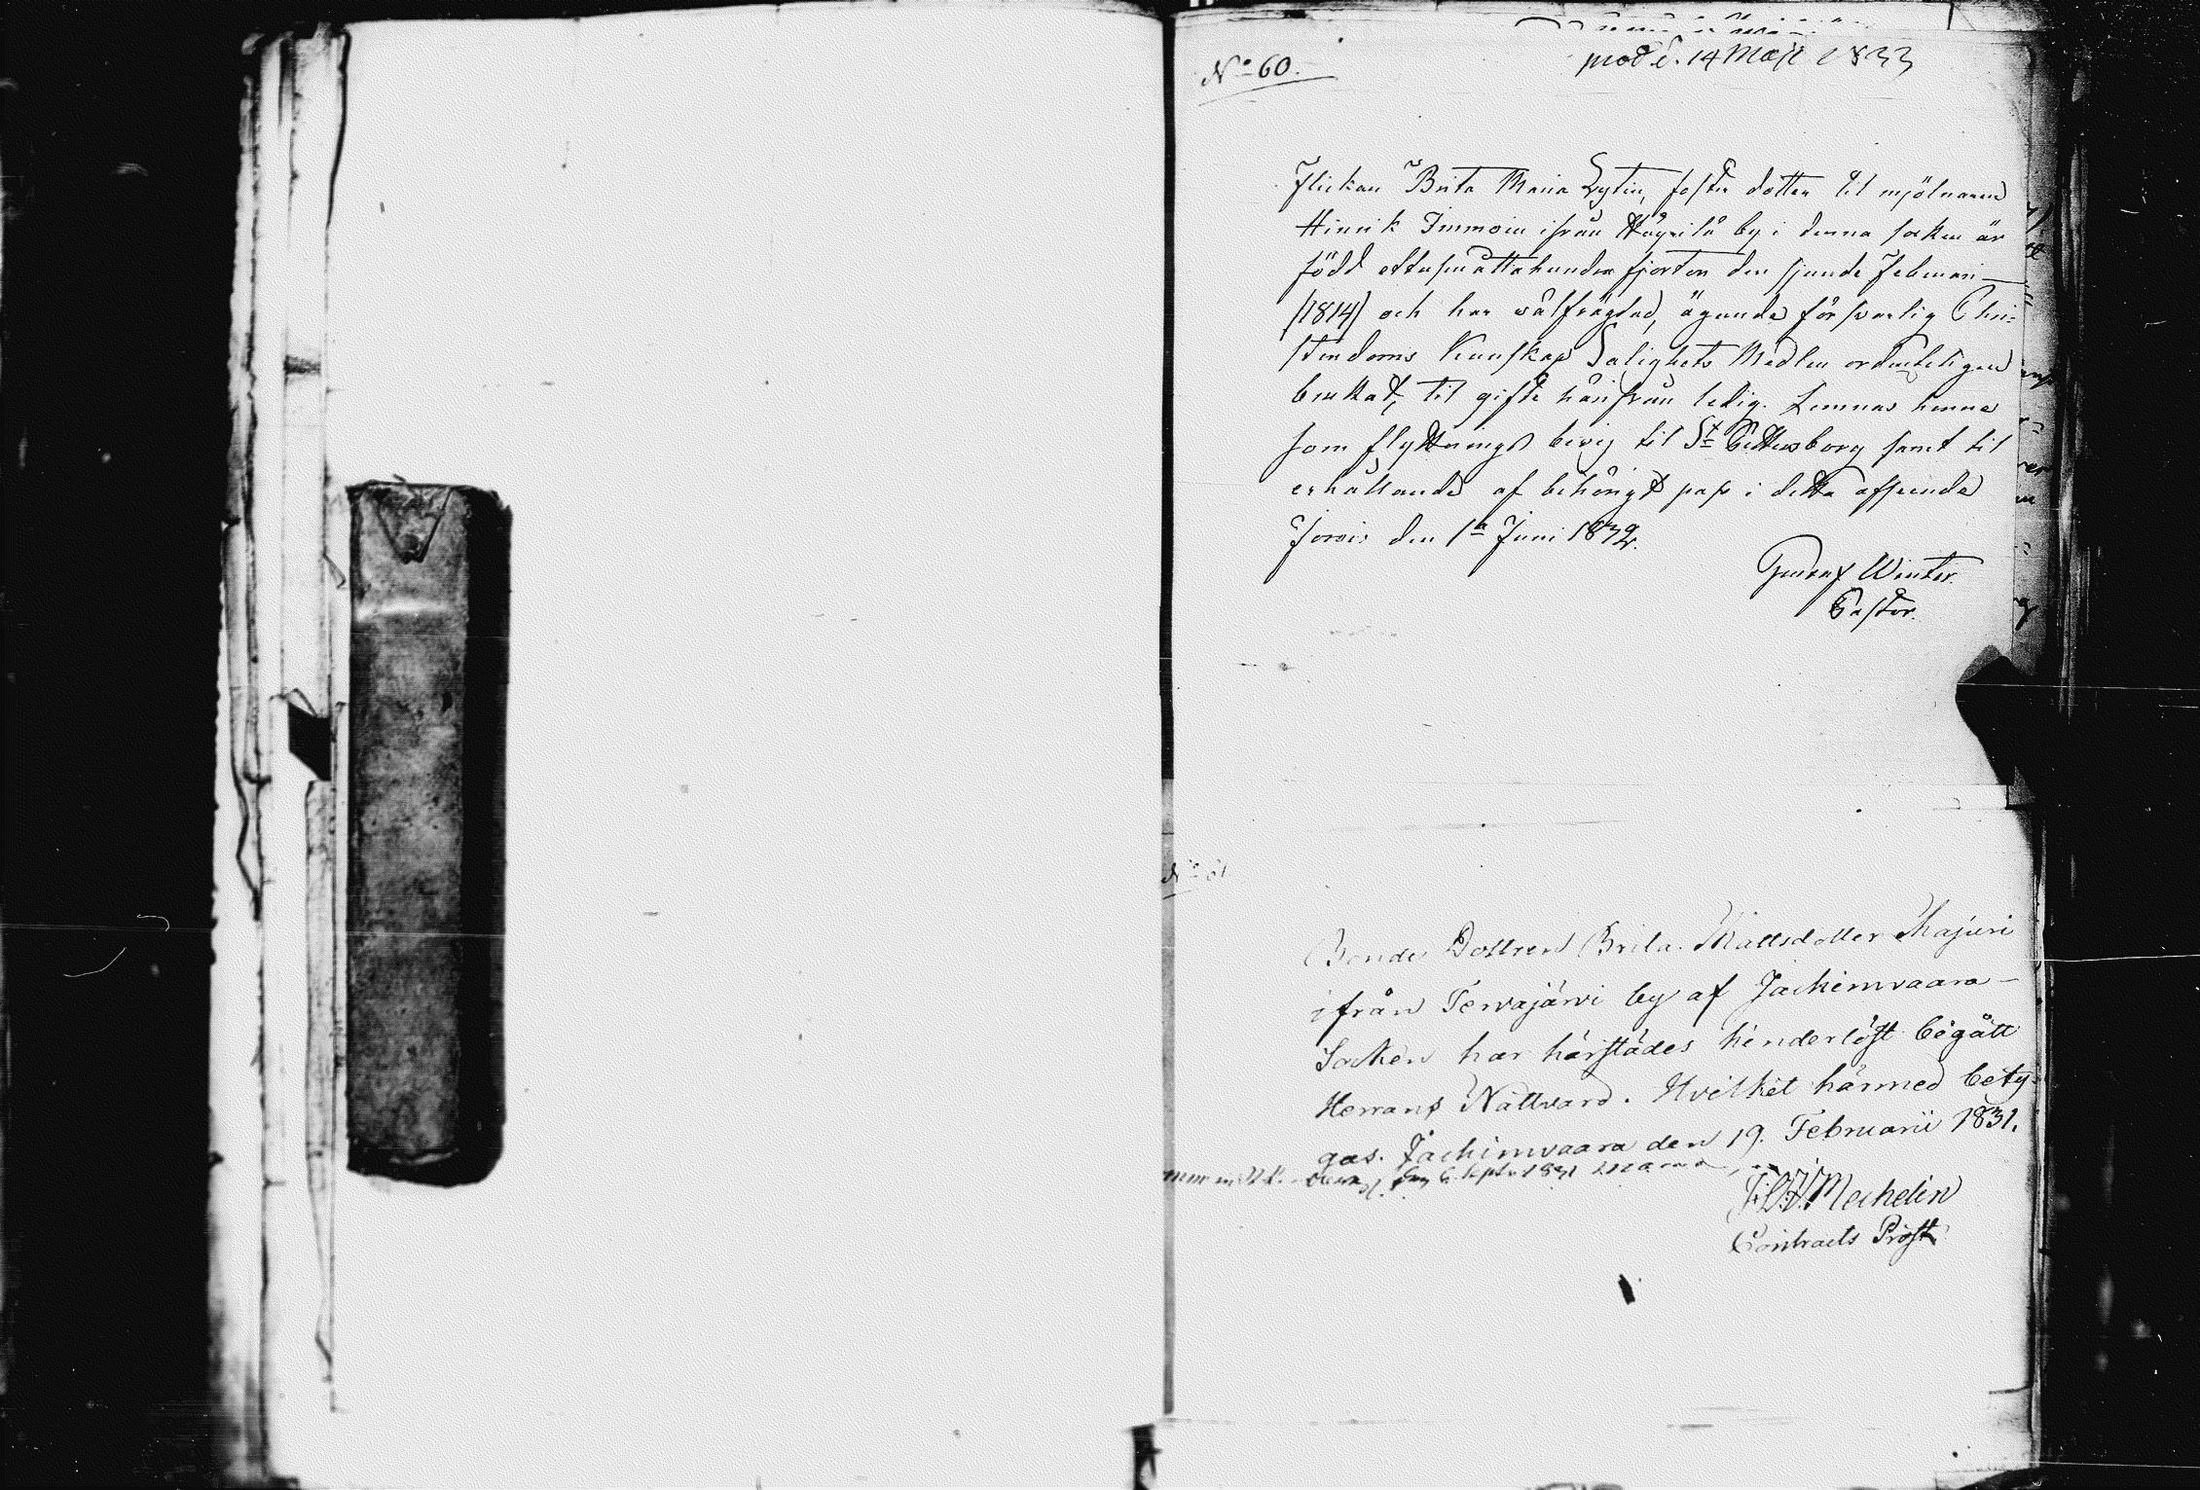 No 60.
prod d. 14 Maji 1833
Flickan Brita Maria Lytin, foster dotter til mjölnaren
Hinrik Immoin ifrån by i denna socken är
född ettusenåttahundra fjorton den sjunde Februari
(1814) och har välfrägdad, ägande försvarlig Chri-
stendoms Kunskap Salighets Medlen ordenteligen
brukat, til gifte härifrån ledig. Lemnas henne
som flyttnings bevis til St Pettersborg samt til
erhållande af behörigt pass i detta afseende
Jorois den 1a Juni 1832.
Gustaf Winter.
Pastor.
No 61
Bonde Dottren Brita Mattsdotter Majuri
ifrån Tervajärvi by af Jackimvaara
Socken har härstädes hinderlöst begått
Herrans Nattvard. Hvilket härmed bety-
gas. Jachimvaara den 19. Februarii 1831.
Mechelin
Contracts Prost